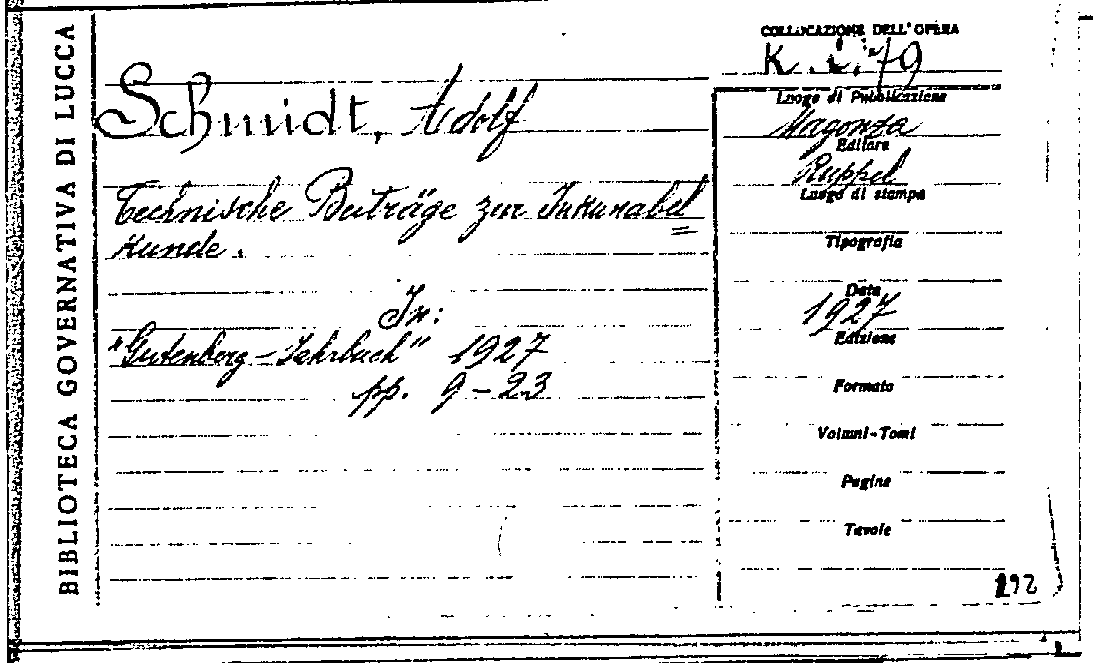 BIBLIOTECA GOVERNATIVA DI LUCCA
Schmidt, Adolf
Technische Beiträge zur Inkunabel
Kunde.
In:
"Gutenberg-Jahrbuch" 1927
pp. 9-23
COLLOCAZIONE DELL'OPERA
Luogo di Pubblicazione
Magonza
Editore
Ruppel
Luogo di stampa
Tipografia
Data
1927
Edizione
Formato
Volumi-Tomi
Pagine
Tavole